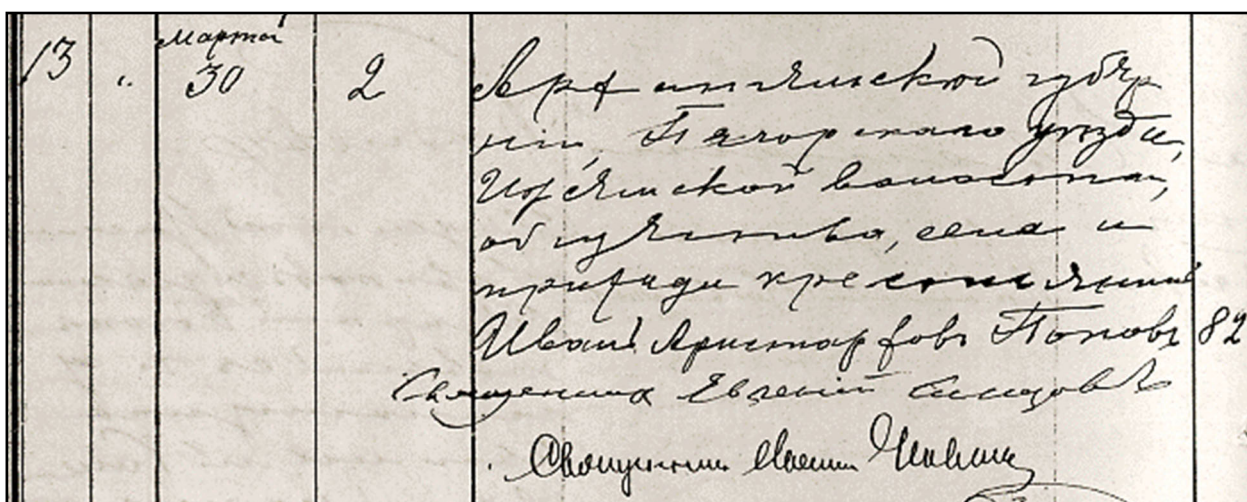 Марта
13 " 30 2 Архангельской губер
нии, Печорскаго уѣзда,
Ижемской волости,
общества, села и
прихода крестьянинъ
Иванъ Аристарховъ Поповъ 82
Священникъ Евгеній
Священникъ